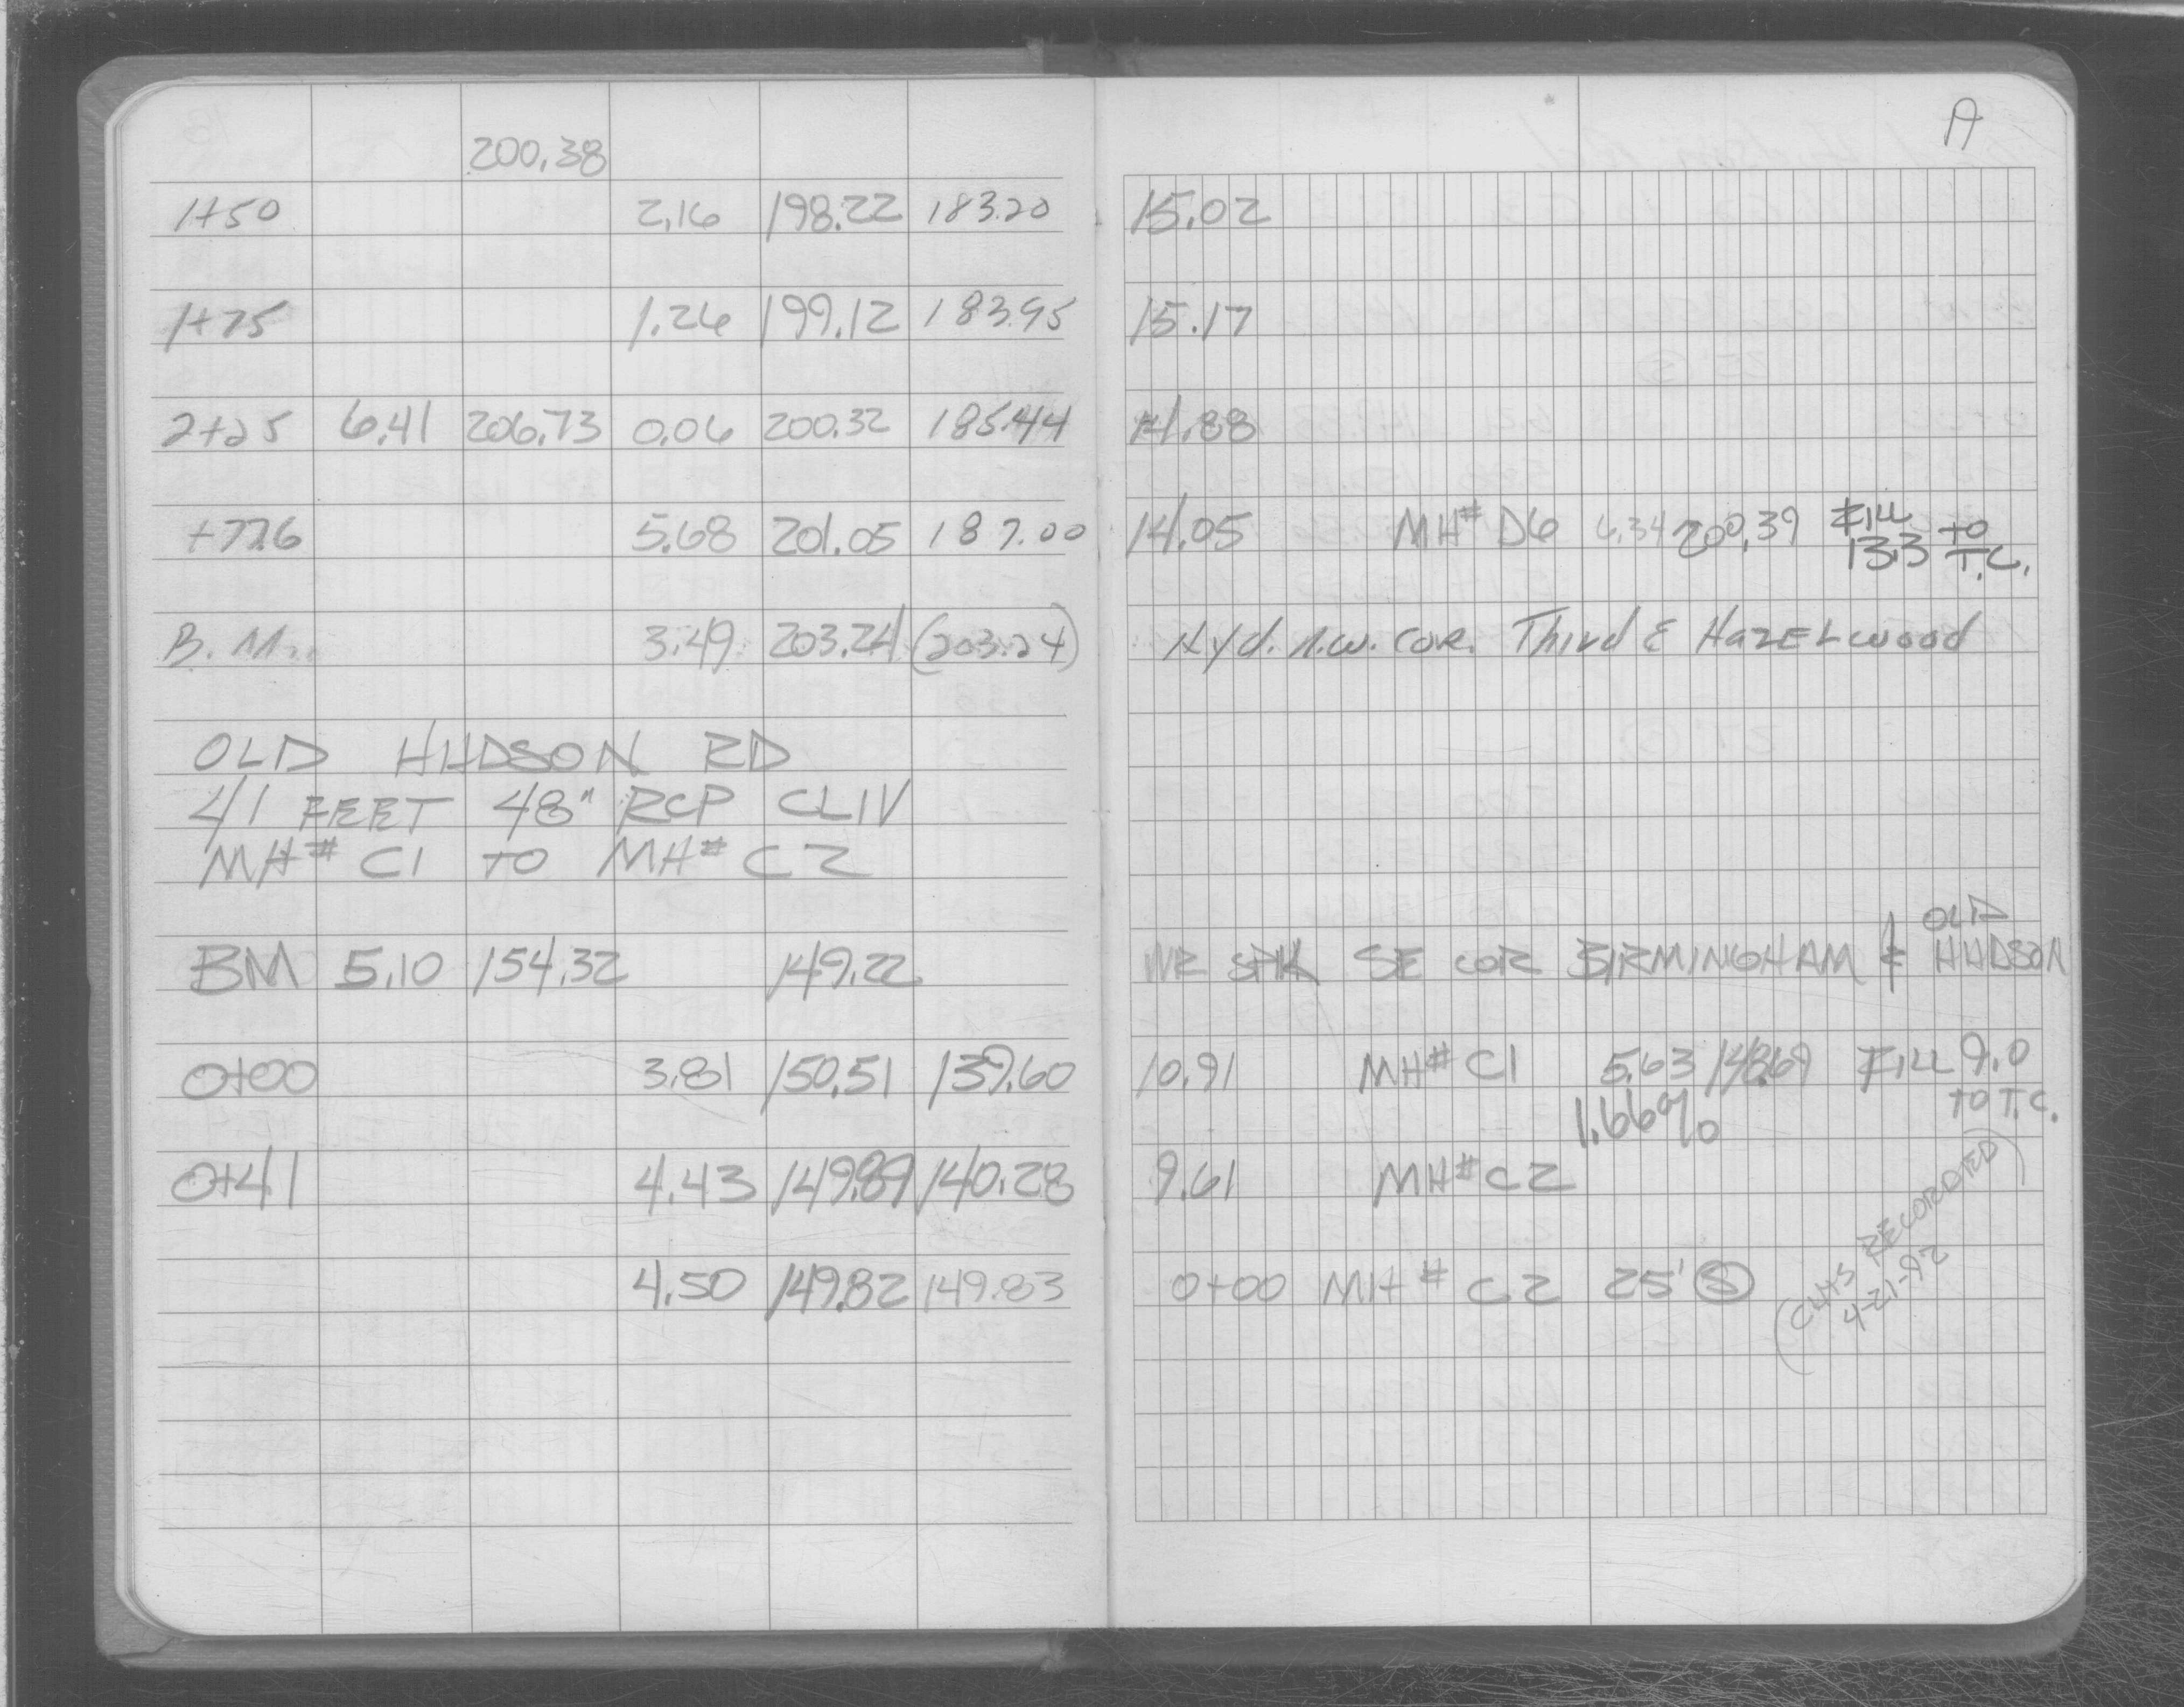 A
200.38
1+50 2.16 198.22 183.20 15.02
1+75 1.26 199.12 183.95 15.17
2+25 6.41 206.73 0.06 200.32 185.44 14.88
+77.6 5.68 201.05 187.00 14.05 MH# D6 6.34 200.39 FILL 13.3 TO T.C.
B.M. 3.49 203.24 (203.24) Hyd. N.W. COR. Third & HAZELwood
OLD HUDSON RD
41 FEET 48" RCP CLIV
MH# C1 TO MH# C2
BM 5.10 154.32 149.22 SPIK SE COR BIRMINGHAM & OLD HUDSON
0+00 3.81 150.51 139.60 10.91 MH# C1 5.63 148.69 FILL 9.0 TO T.C.
1.66%
0+41 4.43 149.89 140.28 9.61 MH# C2
4.50 149.82 149.83 0+00 MH# C2 25' S
(CUTS RECORDED)
4-21-92